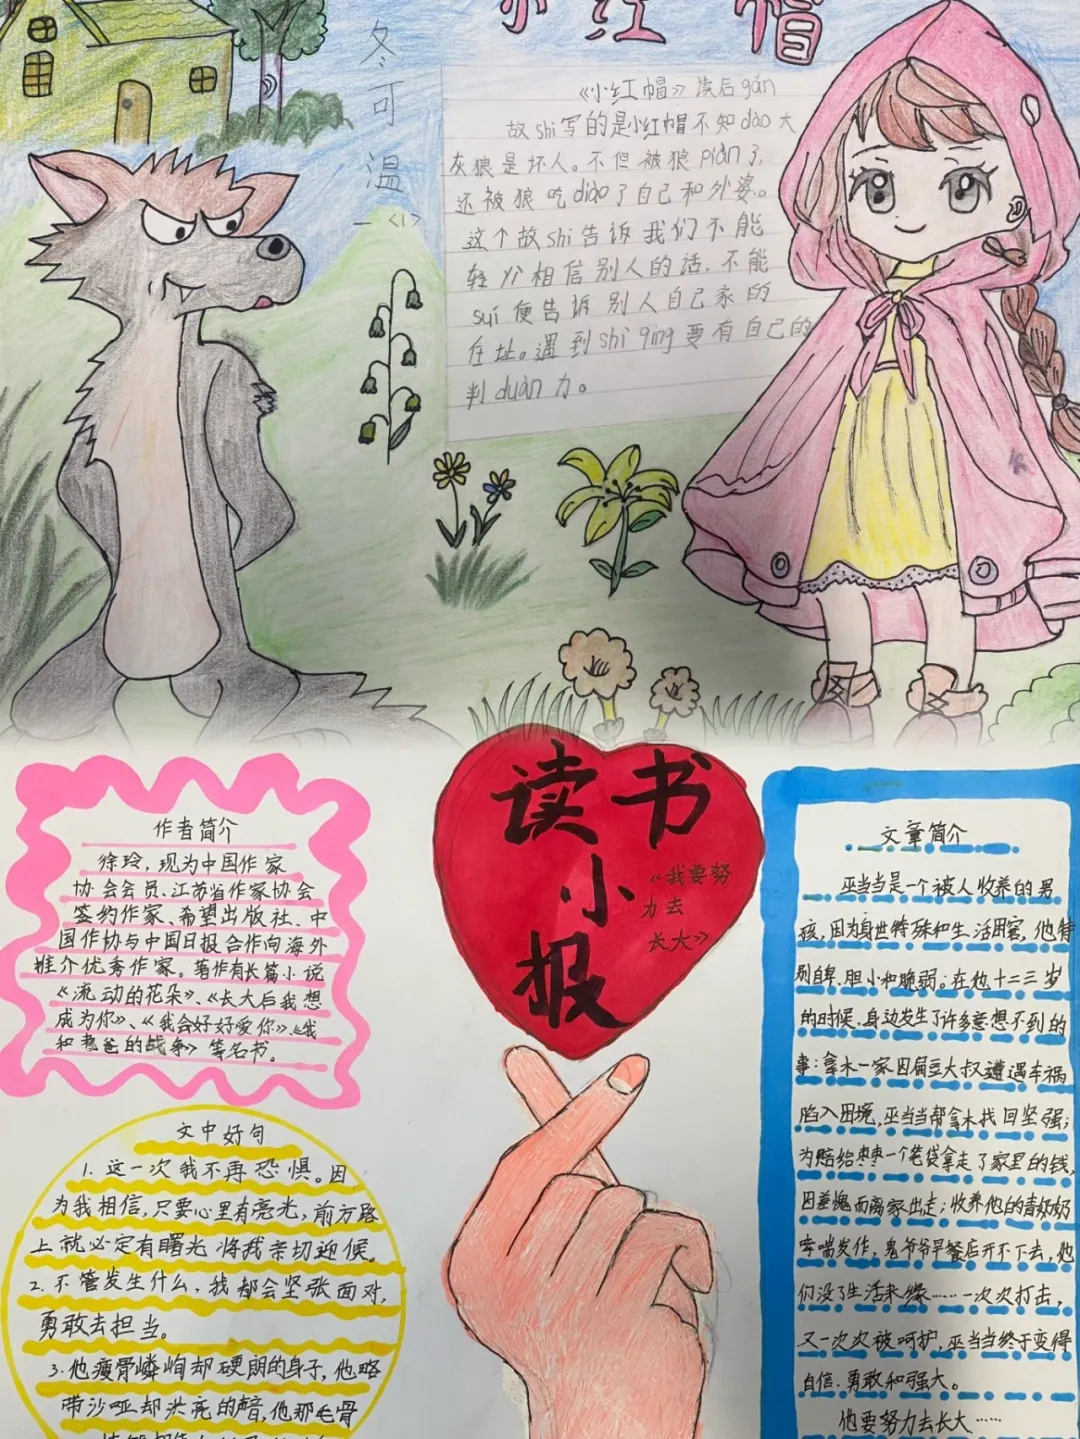 小红帽
冬可温
一<1>
《小红帽》读后gǎn
故shi写的是小红帽不知dào大
灰狼是坏人。不但被狼piàn了,
还被狼吃diào了自己和外婆。
这个故shi告诉我们不能
轻 相信别人的话,不能
suí便告诉别人自己家的
住址。遇到shì qing要有自己的
判duàn力。
读书
小
报
《我要努
力去
长大》
作者简介
徐玲,现为中国作家
协会会员、江苏省作家协会
签约作家、希望出版社、中
国作协与中国日报合作向海外
推介优秀作家。著作有长篇小说
《流动的花朵》、《长大后我想
成为你》、《我会好好爱你》、《我
和老爸的战争》等名书。
文中好句
1.这一次我不再恐惧。因
为我相信,只要心里有亮光,前方路
上就必定有曙光将我亲切迎候。
2.不管发生什么,我都会坚张面对,
勇敢去担当。
3.他瘦骨嶙峋却硬朗的身子,他略
带沙哑却洪亮的,他那毛骨
文章简介
巫当当是一个被人收养的男
孩,因为身世特殊和生活困窘,他特
别自卑、胆小和脆弱。在他十二三岁
的时候,身边发生了许多意想不到的
事:拿木一家因扁豆大叔遭遇车祸
陷入困境,巫当当帮拿木找回坚强;
为赔给枣枣一个笔袋拿走了家里的钱,
因羞愧而离家出走;收养他的青奶奶
哮喘发作,鬼爷爷早餐店开不下去,他
们没了生活来缘……一次次打击,
又一次次被呵护,巫当当终于变得
自信、勇敢和强大。
他要努力去长大……